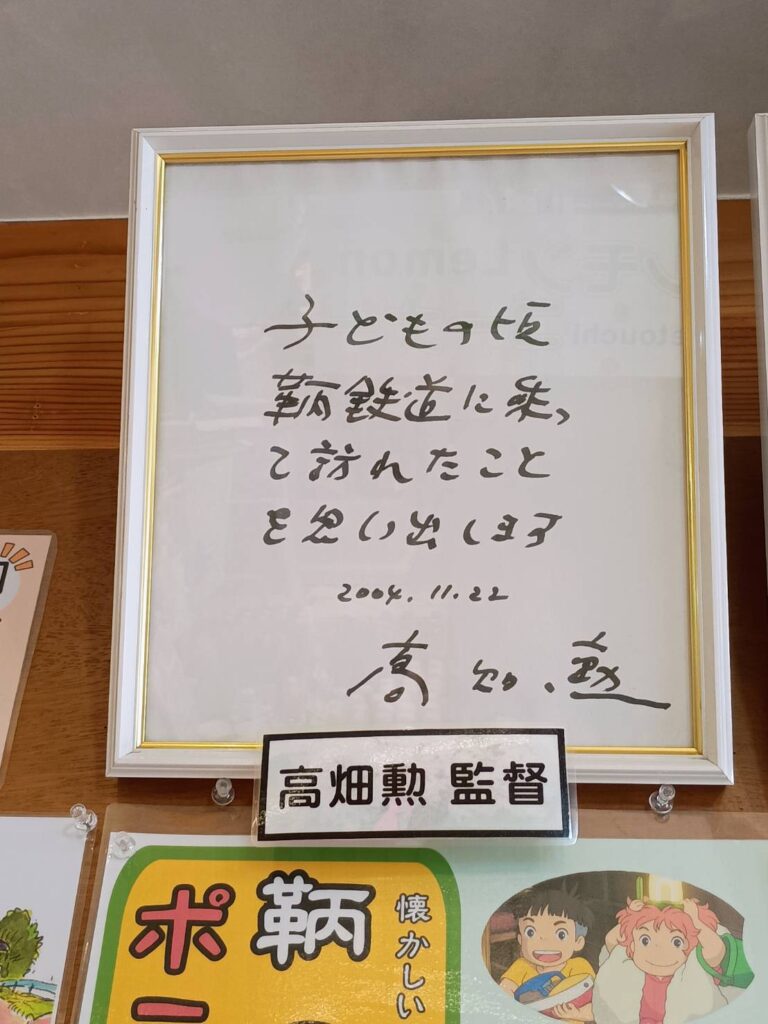 子どもの頃
鞆鉄道に乗っ
て訪れたこと
を思い出します
2004.11.22
高畑勲
高畑勲 監督
懐かしい
鞆
ポ
モン Lemon
etouchi